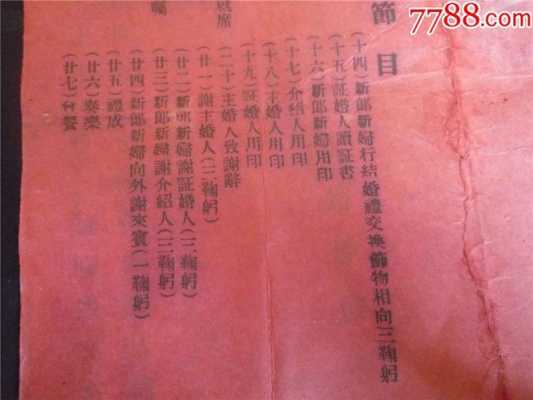 7788.com
節目
(十四)新郎新婦行結婚禮交換飾物相向三鞠躬
(十五)証婚人讀証書
(十六)新郎新婦用印
(十七)介紹人用印
(十八)主婚人用印
(十九)証婚人用印
(二十)主婚人致謝辭
(廿一)謝主婚人(三鞠躬)
(廿二)新郎新婦謝証婚人(三鞠躬)
(廿三)新郎新婦謝介紹人(三鞠躬)
(廿四)新郎新婦向外謝來賓(一鞠躬)
(廿五)禮成
(廿六)奏樂
(廿七)茶餐
就席